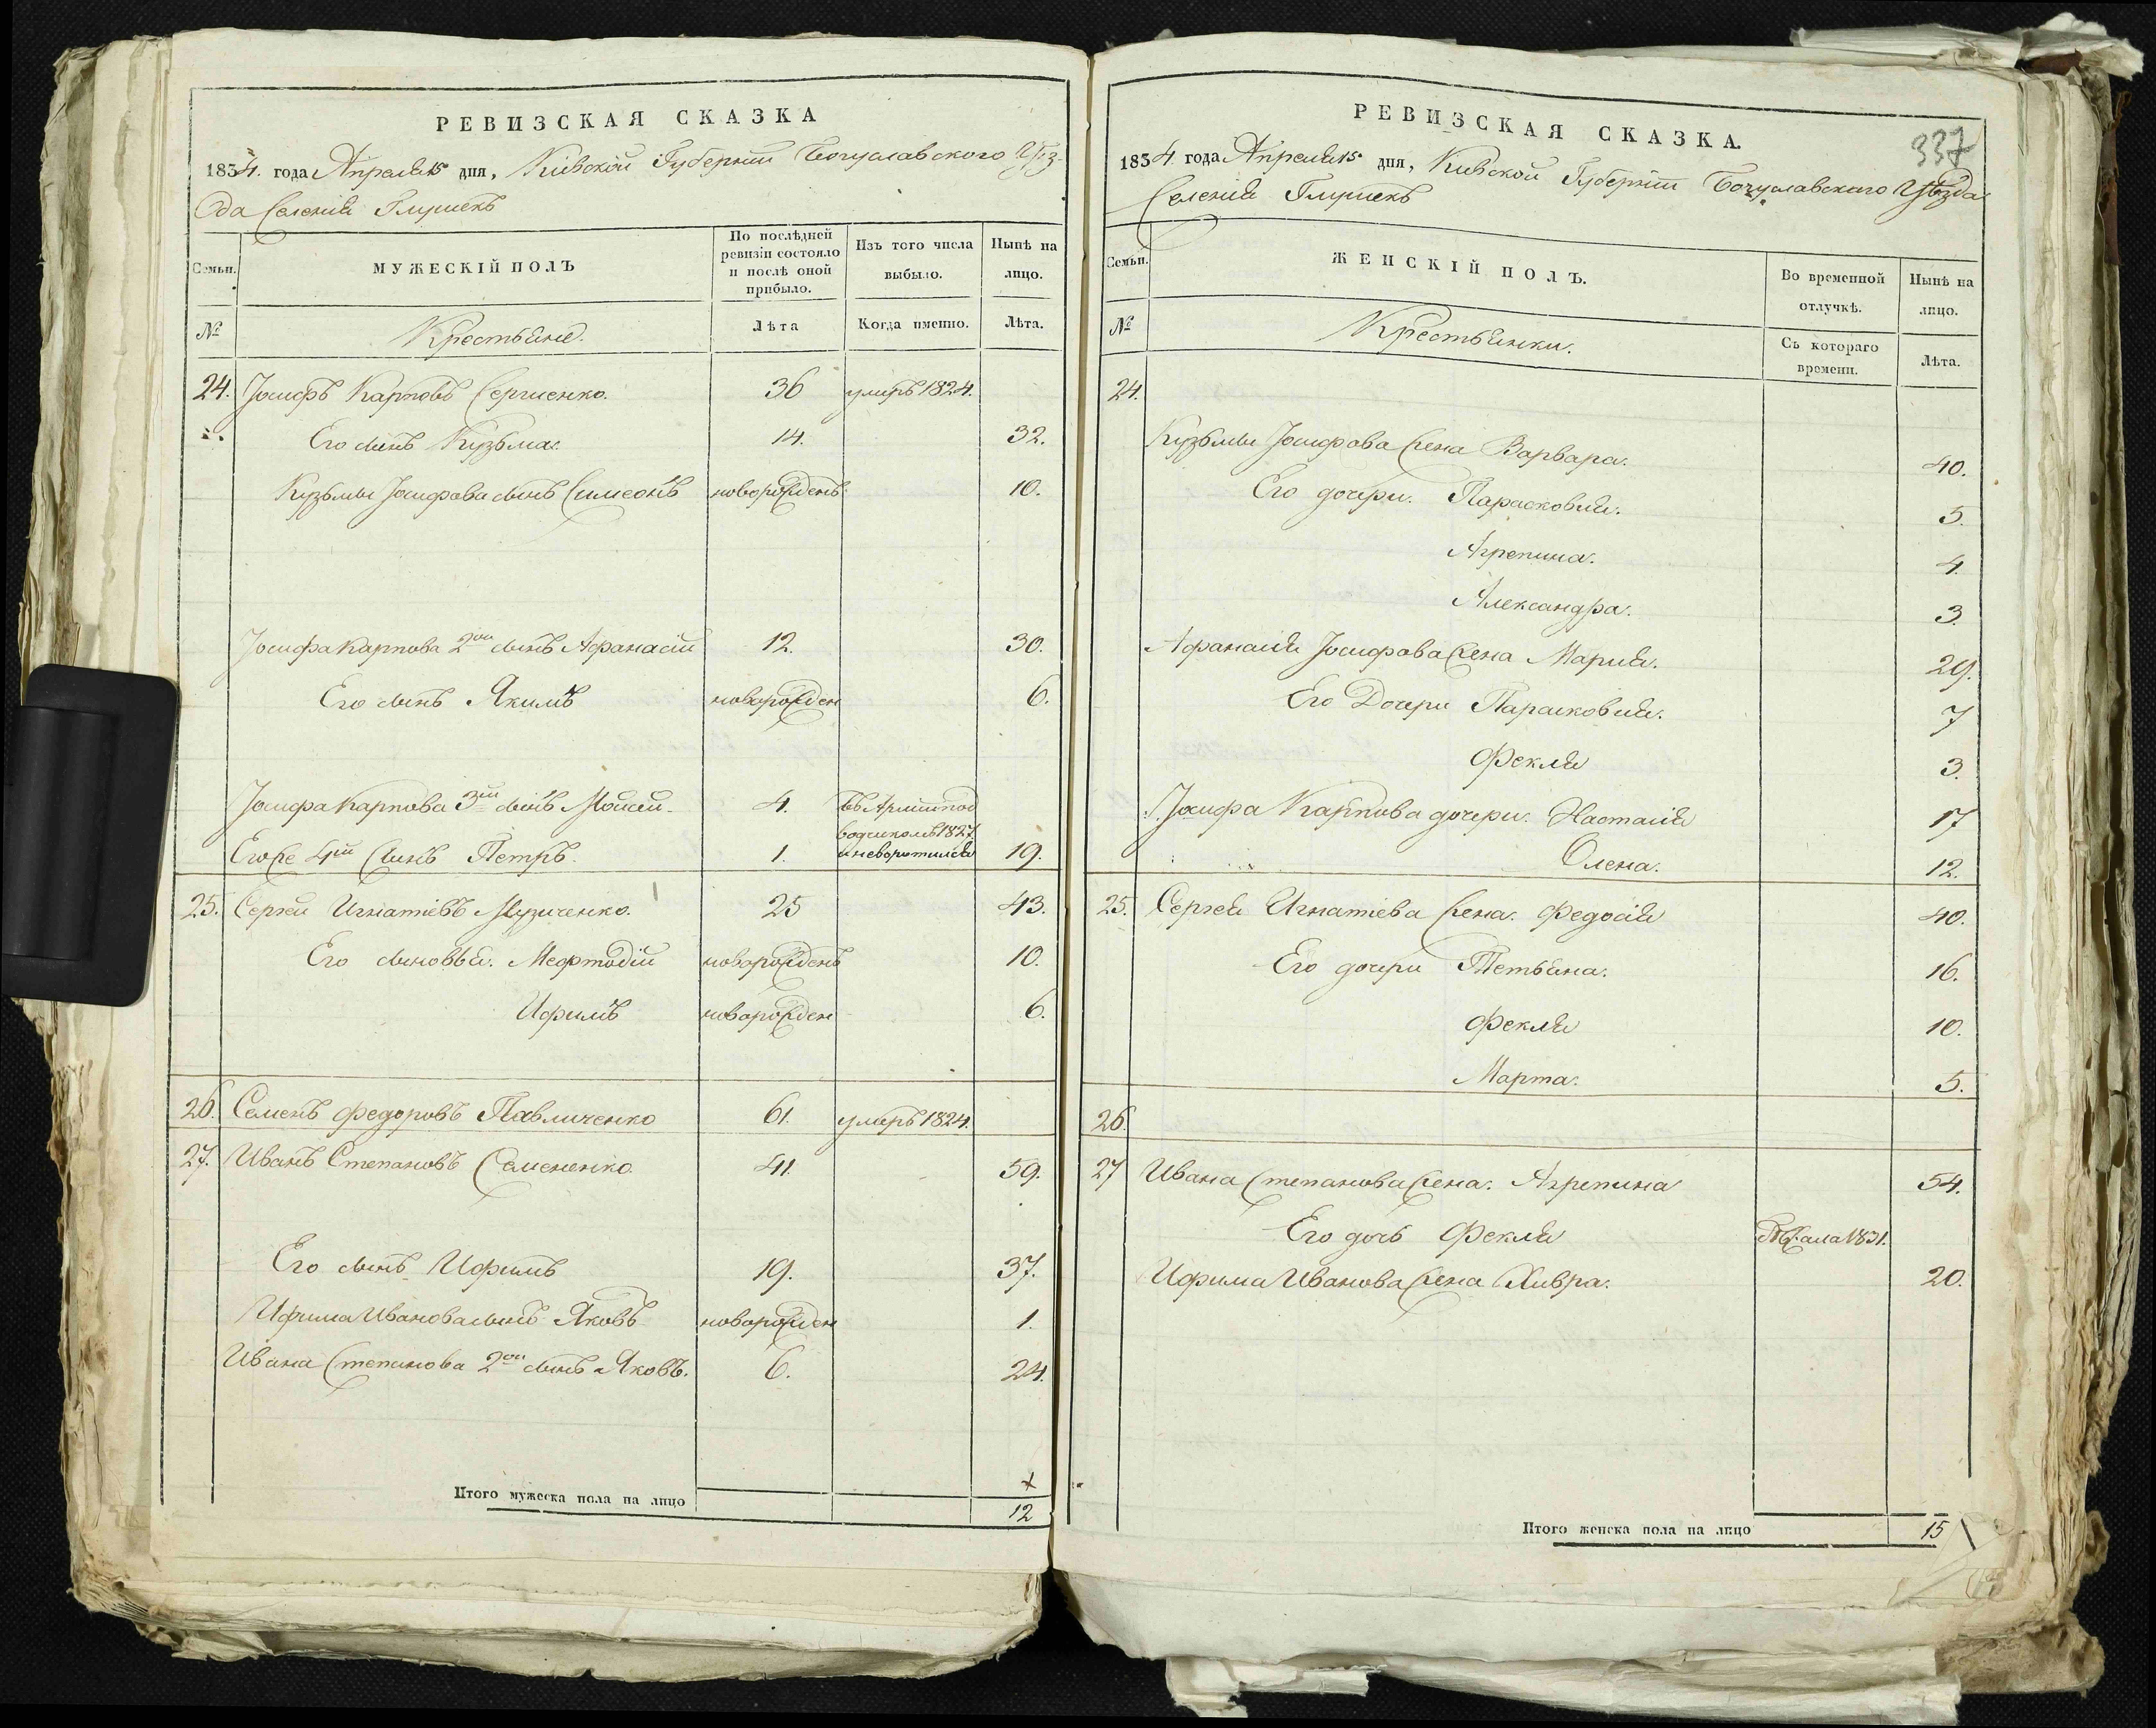 РЕВИЗСКАЯ СКАЗКА
1834. года Апреля 15 дня, Кіевской Губерніи Богуславского Уѣз-
да Селенія
Семьи.
МУЖЕСКІЙ ПОЛЪ
По послѣдней ревизіи состояло и послѣ оной прибыло.
Изъ того числа выбыло.
Нынѣ на лицо.
№
Крестьяне.
Лѣта
Когда именно.
Лѣта.
24. Іосифъ Карповъ Сергиенко. 36 умеръ 1824.
Его сынъ Кузьма. 14. 32.
Кузьмы Іосифова сынъ Симеонъ новорожденъ 10.
Іосифа Карпова 2ой сынъ Афанасій 12. 30.
Его сынъ Якимъ новорожден 6.
Іосифа Карпова 3ій сынъ Моисей 4. въ Арміи под
водчикомъ 1827
Егоже 4ий Сынъ Петръ. 1. и неворотился 19.
25. Сергей Игнатіевъ Музиченко. 25 43.
Его сыновья. Мефтодій новорожденъ 10.
Ифимъ новорожден 6.
26. Семенъ Федоровъ Павличенко 61. умеръ 1824.
27. Иванъ Степановъ Семененко. 41. 59.
Его сынъ Ифимъ 19. 37.
Ифима Иванова сынъ Яковъ новорожден 1.
Ивана Степанова 2ой сынъ Яковъ. 6. 24.
Итого мужеска пола на лицо 12
337
РЕВИЗСКАЯ СКАЗКА.
1834. года Апреля 15. дня, Киевской Губерніи Богуславскаго Уѣзда
Селенія
Семьи.
ЖЕНСКІЙ ПОЛЪ.
Во временной отлучкѣ.
Нынѣ на лицо.
№
Крестьянки.
Съ котораго времени.
Лѣта.
24.
Кузьмы Іосифова жена Варвара. 40.
Его дочери. Парасковия. 5.
Агрепина. 4.
Александра. 3.
Афанасія Іосифова жена Мария. 29.
Его Дочери Парасковия. 7
Фекля 3.
Іосифа Карпова дочери. Настасия 17
Олена. 12.
25. Сергея Игнатіева жена. Федосія 40.
Его дочери Тетьяна. 16.
Фекля 10.
Марта. 5.
26.
27 Ивана Степанова жена. Агрепина 54.
Его дочь Фекля 1831.
Ифима Иванова жена Хивра. 20.
Итого женска пола на лицо 15